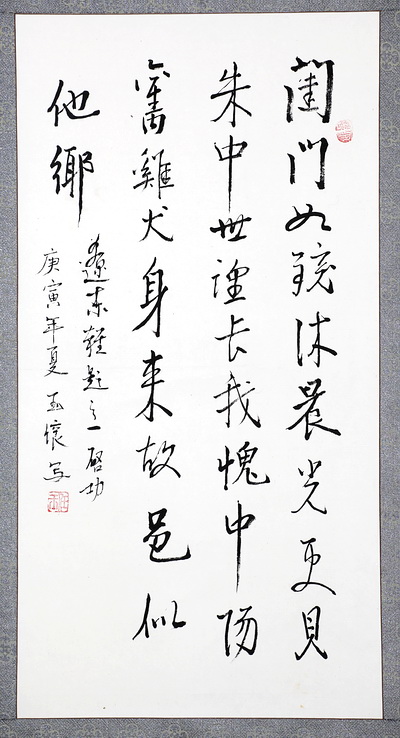 門如鏡沐晨光更見
朱中世长我愧中陽
舊雞犬身来故邑似
他鄉
遼东雜題之一啓功
庚寅年夏玉懷写